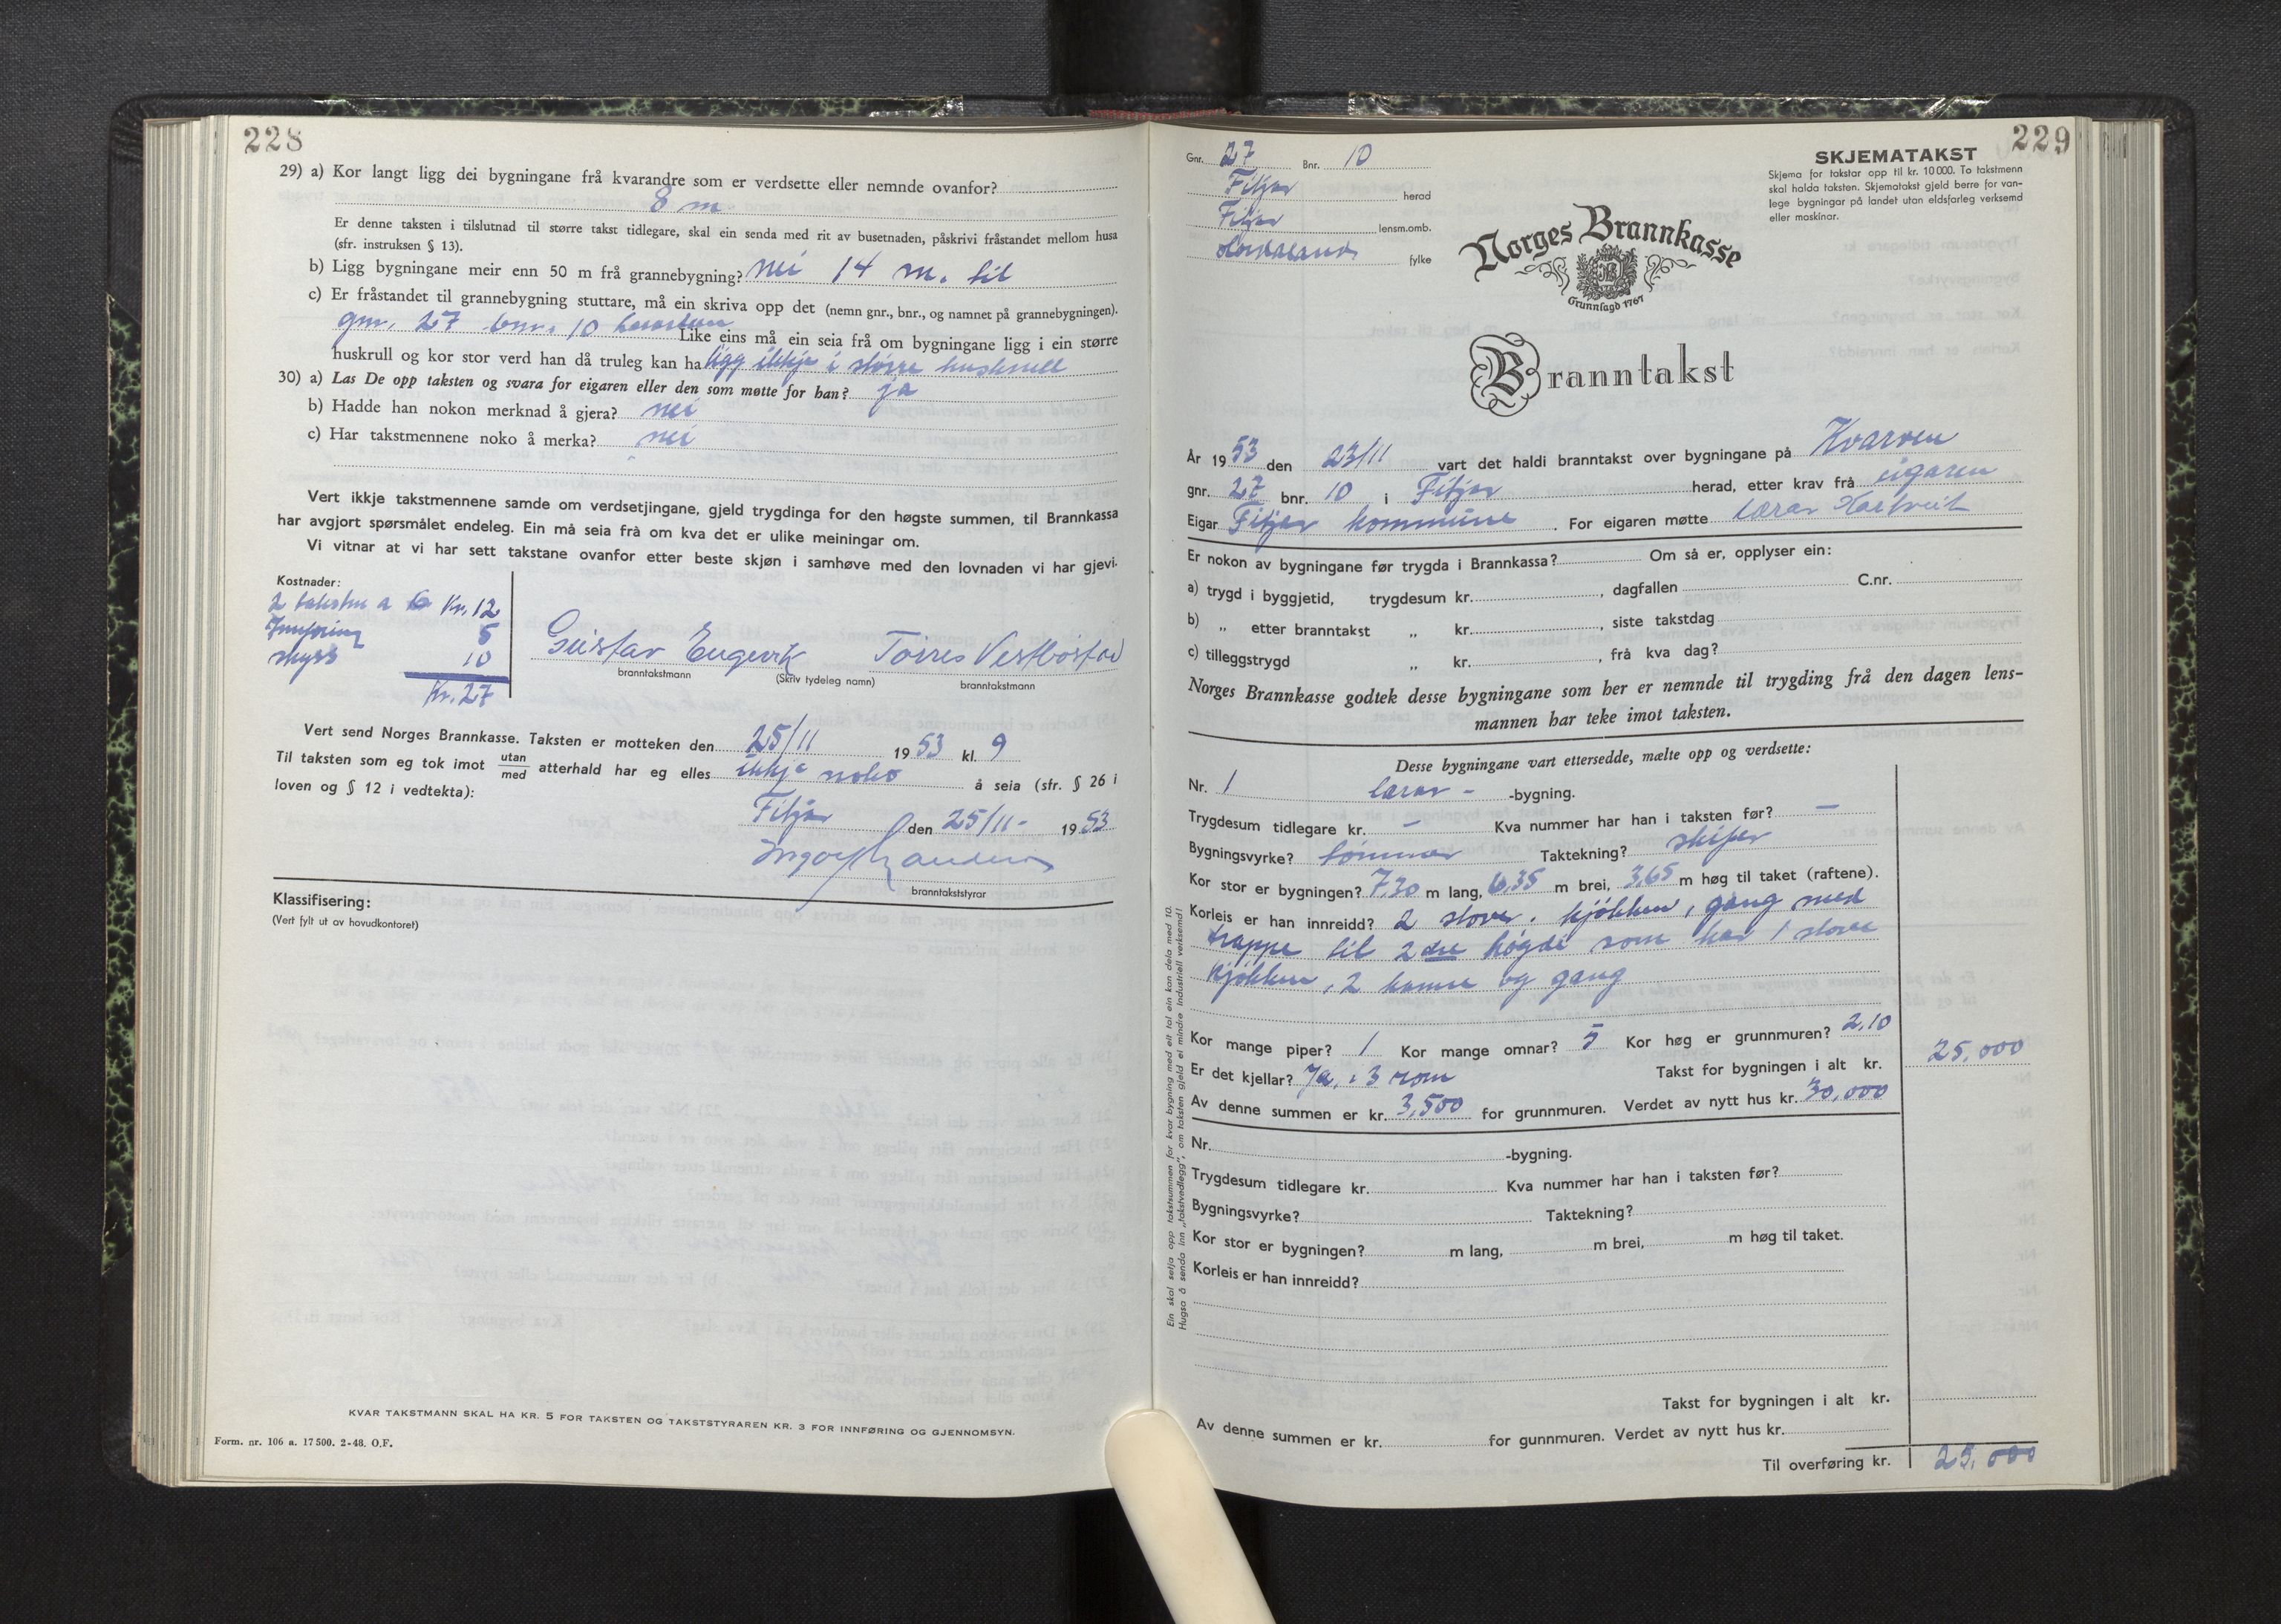 228
29) a) Kor langt ligg dei bygningane frå kvarandre som er verdsette eller nemnde ovanfor?
8 m
Er denne taksten i tilslutnad til større takst tidlegare, skal ein senda med rit av busetnaden, påskrivi fråstandet mellom husa
(sfr. instruksen § 13).
b) Ligg bygningane meir enn 50 m frå grannebygning? nei 14 m. til
c) Er fråstandet til grannebygning stuttare, må ein skriva opp det (nemn gnr., bnr., og namnet på grannebygningen).
gnr. 27 bnr. 10 Like eins må ein seia frå om bygningane ligg i ein større
huskrull og kor stor verd han då truleg kan ha ligg ikkje i større huskrull
30) a) Las De opp taksten og svara for eigaren eller den som møtte for han? ja
b) Hadde han nokon merknad å gjera? nei
c) Har takstmennene noko å merka? nei
Vert ikkje takstmennene samde om verdsetjingane, gjeld trygdinga for den høgste summen, til Brannkassa
har avgjort spørsmålet endeleg. Ein må seia frå om kva det er ulike meiningar om.
Vi vitnar at vi har sett takstane ovanfor etter beste skjøn i samhøve med den lovnaden vi har gjevi.
Kostnader:
2 takstm a 6 Kr. 12
Innføring 5
skyss 10
Kr. 27
Gustav Engevik Torres Vestbøstad
branntakstmann (Skriv tydeleg namn) branntakstmann
Vert send Norges Brannkasse. Taksten er motteken den 25/11 1953 kl. 9
Til taksten som eg tok imot utan/med atterhald har eg elles ikkje noko å seia (sfr. § 26 i
loven og § 12 i vedtekta):
Fitjar den 25/11- 1953
branntakststyrar
Klassifisering:
(Vert fylt ut av hovudkontoret)
KVAR TAKSTMANN SKAL HA KR. 5 FOR TAKSTEN OG TAKSTSTYRAREN KR. 3 FOR INNFØRING OG GJENNOMSYN.
Form. nr. 106 a. 17500. 2-48. O.F.
229
Gnr. 27 Bnr. 10
Fitjar herad
Fitjar lensm.omb.
Hordaland fylke
SKJEMATAKST
Skjema for takstar opp til kr. 10 000. To takstmenn
skal halda taksten. Skjematakst gjeld berre for van-
lege bygningar på landet utan eldsfarleg verksemd
eller maskinar.
Norges Brannkasse
Grunnlagd 1767
Branntakst
År 1953 den 23/11 vart det haldi branntakst over bygningane på Kvarven
gnr. 27 bnr. 10 i Fitjar herad, etter krav frå eigaren
Eigar Fitjar kommune. For eigaren møtte lærar Hartveit
Er nokon av bygningane før trygda i Brannkassa? Om så er, opplyser ein:
a) trygd i byggjetid, trygdesum kr. , dagfallen C.nr.
b) „ etter branntakst „ kr. , siste takstdag
c) tilleggstrygd „ kr. , frå kva dag?
Norges Brannkasse godtek desse bygningane som her er nemnde til trygding frå den dagen lens-
mannen har teke imot taksten.
Desse bygningane vart ettersedde, mælte opp og verdsette:
Nr. 1 lærar - -bygning.
Trygdesum tidlegare kr. — Kva nummer har han i taksten før? —
Bygningsvyrke? tømmer Taktekning? skifer
Kor stor er bygningen? 7,30 m lang, 6,35 m brei, 3,65 m høg til taket (raftene).
Korleis er han innreidd? 2 stover, kjøkken, gang med
trappe til 2dre høgde som har 1 stove
kjøkken, 2 kamre og gang
Kor mange piper? 1 Kor mange omnar? 5 Kor høg er grunnmuren? 2,10
Er det kjellar? Ja, i 3 rom Takst for bygningen i alt kr. 25,000
Av denne summen er kr. 3,500 for grunnmuren. Verdet av nytt hus kr. 30,000
Nr. -bygning.
Trygdesum tidlegare kr. Kva nummer har han i taksten før?
Bygningsvyrke? Taktekning?
Kor stor er bygningen? m lang, m brei, m høg til taket.
Korleis er han innreidd?
Takst for bygningen i alt kr.
Av denne summen er kr. for gunnmuren. Verdet av nytt hus kr.
Til overføring kr. 25,000
Ein skal setja opp takstsummen for kvar bygning med eit tal ein kan dela med 10.
Hugsa å senda inn „takstvedlegg", om taksten gjeld ei mindre industriell verksemd!